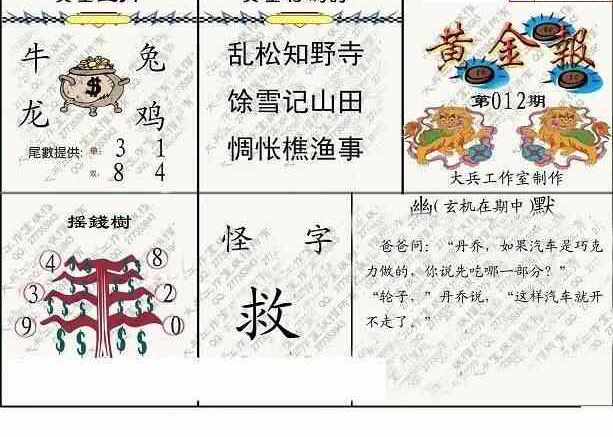 牛 兔
龙 鸡
尾數提供: 单: 3 1
双: 8 4
乱松知野寺
馀雪记山田
惆怅樵渔事
黄金報
第012期
大兵工作室制作
摇錢樹
4 8
3 2
9 0
怪 字
救
幽(玄机在期中)默
爸爸问：“丹乔，如果汽车是巧克
力做的，你说先吃哪一部分？”
“轮子，”丹乔说，“这样汽车就开
不走了。”